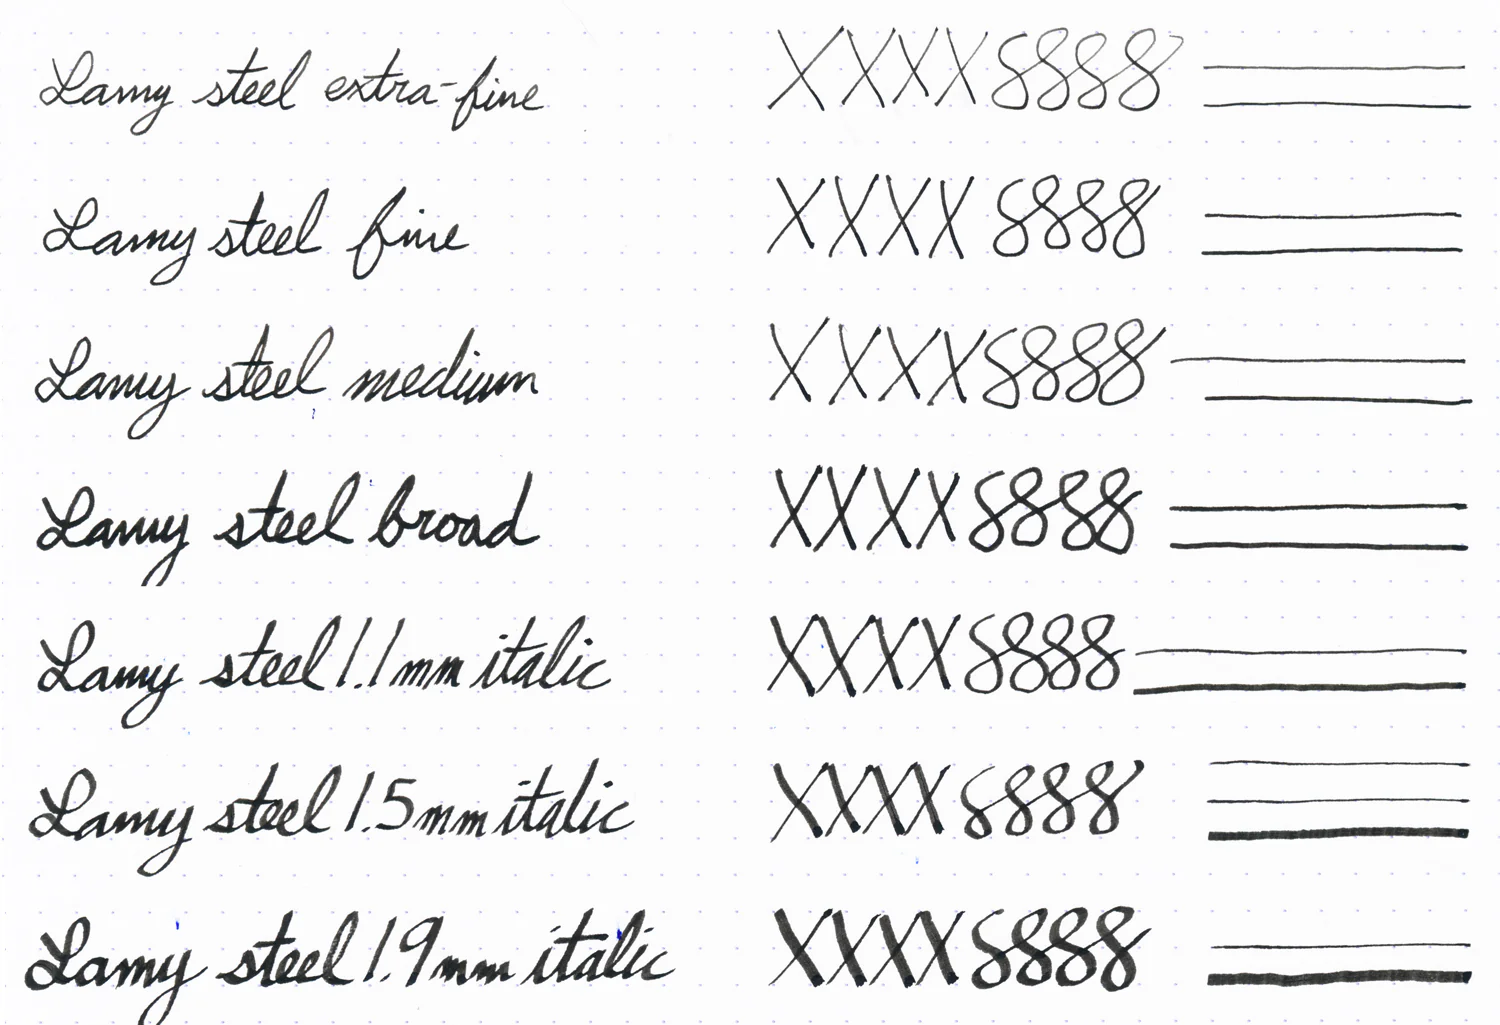 Lamy steel extra-fine XXXX 8888
Lamy steel fine XXXX 8888
Lamy steel medium XXXX 8888
Lamy steel broad XXXX 8888
Lamy steel 1.1mm italic XXXX 8888
Lamy steel 1.5mm italic XXXX 8888
Lamy steel 1.9mm italic XXXX 8888